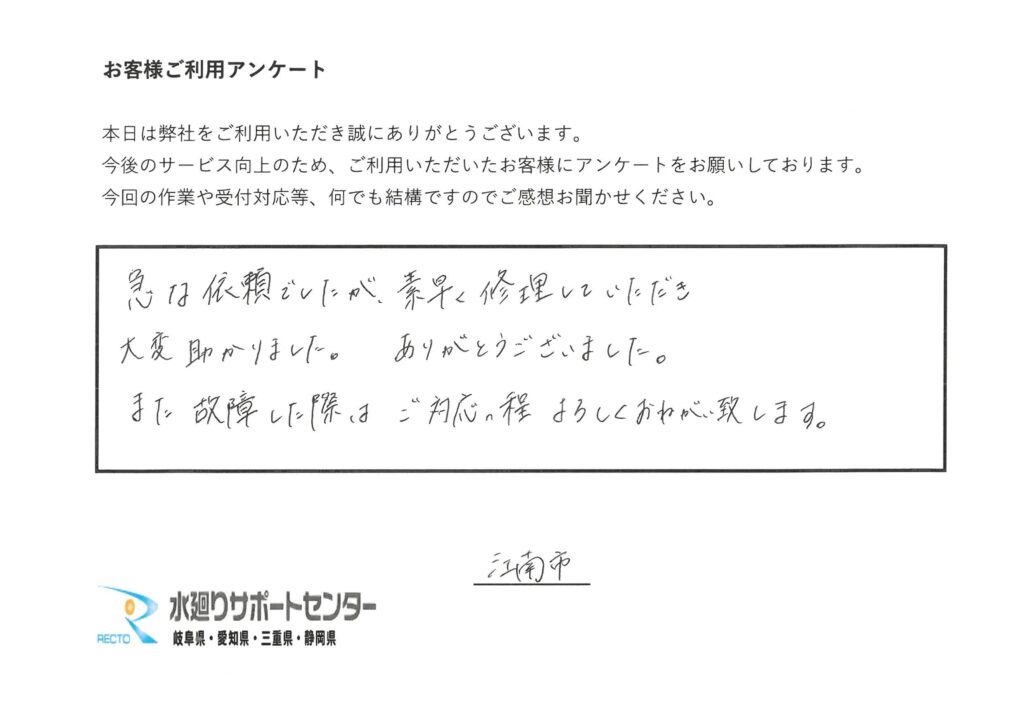 お客様ご利用アンケート
本日は弊社をご利用いただき誠にありがとうございます。
今後のサービス向上のため、ご利用いただいたお客様にアンケートをお願いしております。
今回の作業や受付対応等、何でも結構ですのでご感想お聞かせください。
急な依頼でしたが、素早く修理していただき
大変助かりました。 ありがとうございました。
また故障した際は ご対応の程 よろしくおねがい致します。
江南市
RECTO 水廻りサポートセンター
岐阜県・愛知県・三重県・静岡県